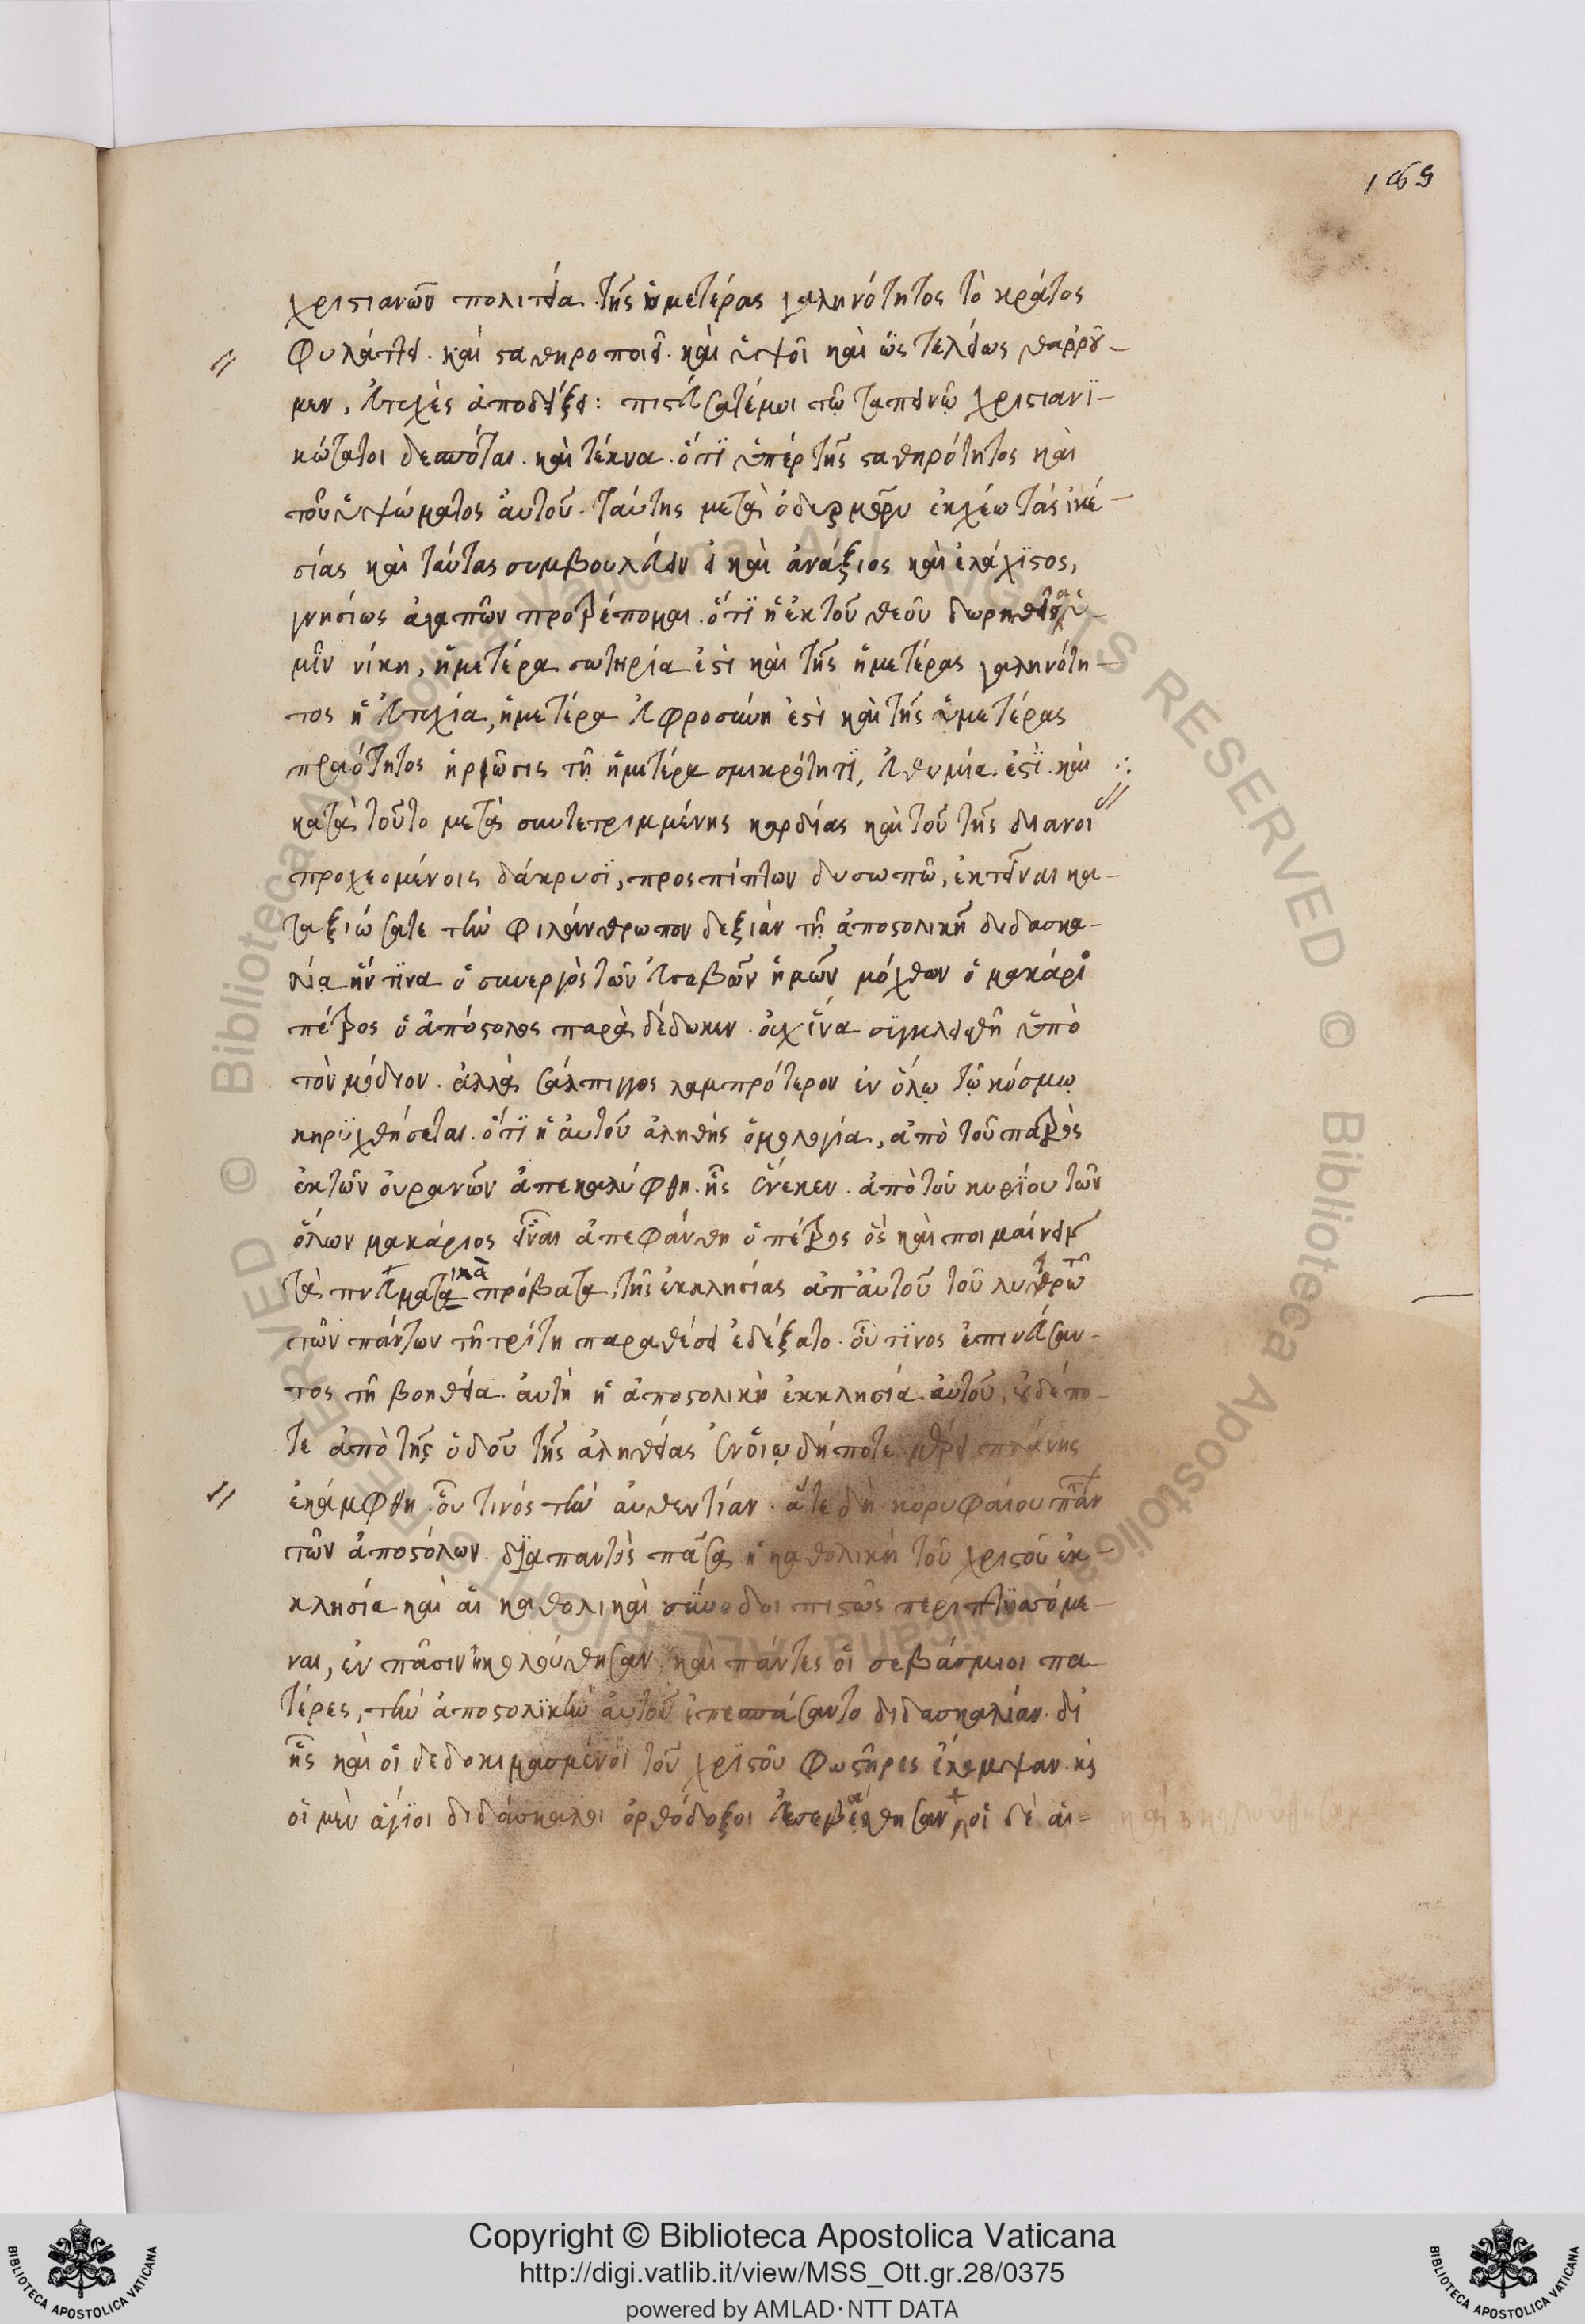 169
χριστιανῶν πολιτεία. τῆς ὑμετέρας γαληνότητος τὸ κράτος
φυλάττει. καὶ σταθηροποιεῖ. καὶ ὑψοῖ καὶ ὡς τελείως θαρροῦ-
μεν, εὐτυχὲς ἀποδείξει: πιστεύσατέ μοι τῷ ταπεινῷ χριστιανϊ-
κώτατοι δεσπόται. καὶ τέκνα. ὅτϊ ὑπὲρ τῆς σταθηρότητος καὶ
τοῦ ὑψώματος αὐτοῦ. ταύτης μετὰ ὀδυρμῶν ἐκχέω τὰς ἱκε-
σίας καὶ ταύτας συμβουλεύειν εἰ καὶ ἀνάξιος καὶ ἐλάχϊστος,
γνησίως ἀγαπῶν προτρέπομαι. ὅτϊ ἡ ἐκ τοῦ θεοῦ δωρηθεῖσα ὑ-
μῖν νίκη, ἡμετέρα σωτηρία ἐστὶ καὶ τῆς ἡμετέρας γαληνότη-
τος ἡ εὐτυχία, ἡμετέρα εὐφροσύνη ἐστὶ καὶ τῆς ὑμετέρας
πραότητος ἡ ῥῶσις τῇ ἡμετέρα σμικρότητϊ, εὐθυμία ἐστϊ. καὶ
κατὰ τοῦτο μετὰ συντετριμμένης καρδίας καὶ τοῦ τῆς διανοι
προχεομένοις δάκρυσϊ, προσπίπτων δυσωπῶ, ἐκτεῖναι κα-
ταξιώσατε τὴν φιλάνθρωπον δεξιὰν τῇ ἀποστολικῇ διδασκα-
λία ἥν τϊνα ὁ συνεργὸς τῶν εὐσεβῶν ἡμῶν μόχθων ὁ μακάριο
πέτρος ὁ ἀπόστολος παρὰ δέδωκεν. οὐχ ἵνα συγκλεισθῇ ὑπὸ
τὸν μόδιον. ἀλλὰ σάλπιγγος λαμπρότερον ἐν ὅλῳ τῷ κόσμῳ
κηρϋχθήσεται. ὅτϊ ἡ αὐτοῦ ἀληθὴς ὁμολογία, ἀπὸ τοῦ πατρὸς
ἐκ τῶν οὐρανῶν ἀπεκαλύφθη. ἧς ἕνεκεν. ἀπὸ τοῦ κυρϊου τῶν
ὅλων μακάριος εἶναι ἀπεφάνθη ὁ πέτρος ὃς καὶ ποιμαίνειν
τὰ πνευματικὰ πρόβατα, τῆς ἐκκλησίας ἀπ' αὐτοῦ τοῦ λυτρωτοῦ
τῶν πάντων τῇ τρίτη παραθέσει ἐδέξατο. οὗ τϊνος ἐπινεύσαν-
τος τῇ βοηθεία. αὐτὴ ἡ ἀποστολικὴ ἐκκλησία αὐτοῦ, οὐδέπο-
τε ἀπὸ τῆς ὁδοῦ τῆς ἀληθείας ἐν οἵῳ δήποτε μέρει πλάνης
ἐκάμφθη. οὗ τινὸς τὴν αὐθεντίαν. ἅτε δὴ κορυφαίου πάντων
τῶν ἀποστόλων. δϊαπαντὸς πᾶσα ἡ καθολικὴ τοῦ χριστοῦ ἐκ-
κλησία καὶ αἱ καθολικαὶ σύνοδοι πιστῶς περιπτϋσσόμε-
ναι, ἐν πᾶσιν ἠκολούθησαν. καὶ πάντες οἱ σεβάσμιοι πα-
τέρες, τὴν ἀποστολϊκὴν αὐτοῦ ἐπεσπάσαντο διδασκαλίαν. δι'
ἧς καὶ οἱ δεδοκιμασμένοϊ τοῦ χρϊστοῦ φωστῆρες ἔλαμψαν. καὶ
οἱ μὲν ἅγϊοι διδάσκαλοι ὀρθόδοξοι ἐσεβάσθησαν, οἱ δὲ αἱ=
Copyright © Biblioteca Apostolica Vaticana
http://digi.vatlib.it/view/MSS_Ott.gr.28/0375
powered by AMLAD·NTT DATA